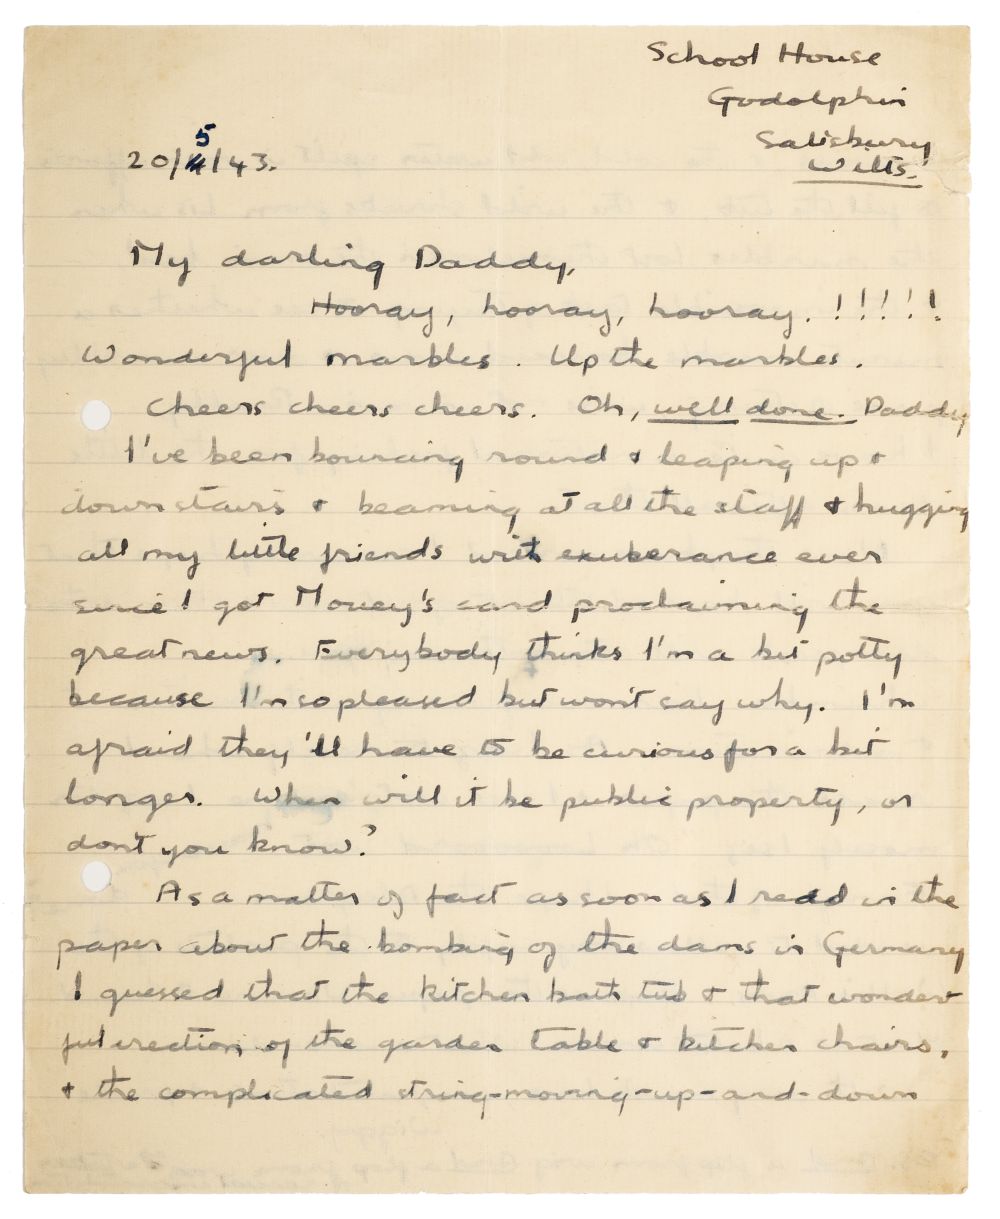 School House
Godolphin
Salisbury
Wilts.
20/5/43.
My darling Daddy,
Hooray, hooray, hooray. !!!!!
Wonderful marbles. Up the marbles.
Cheers cheers cheers. Oh, well done. Daddy
I've been bouncing round & leaping up &
down stairs & beaming at all the staff & hugging
all my little friends with exuberance ever
since I got Mouey's card proclaiming the
great news. Everybody thinks I'm a bit potty
because I'm so pleased but won't say why. I'm
afraid they'll have to be curious for a bit
longer. When will it be public property, or
don't you know?
As a matter of fact as soon as I read in the
paper about the bombing of the dams in Germany
I guessed that the kitchen bath tub & that wonder
ful erection of the garden table & kitchen chairs,
& the complicated string-moving-up-and-down